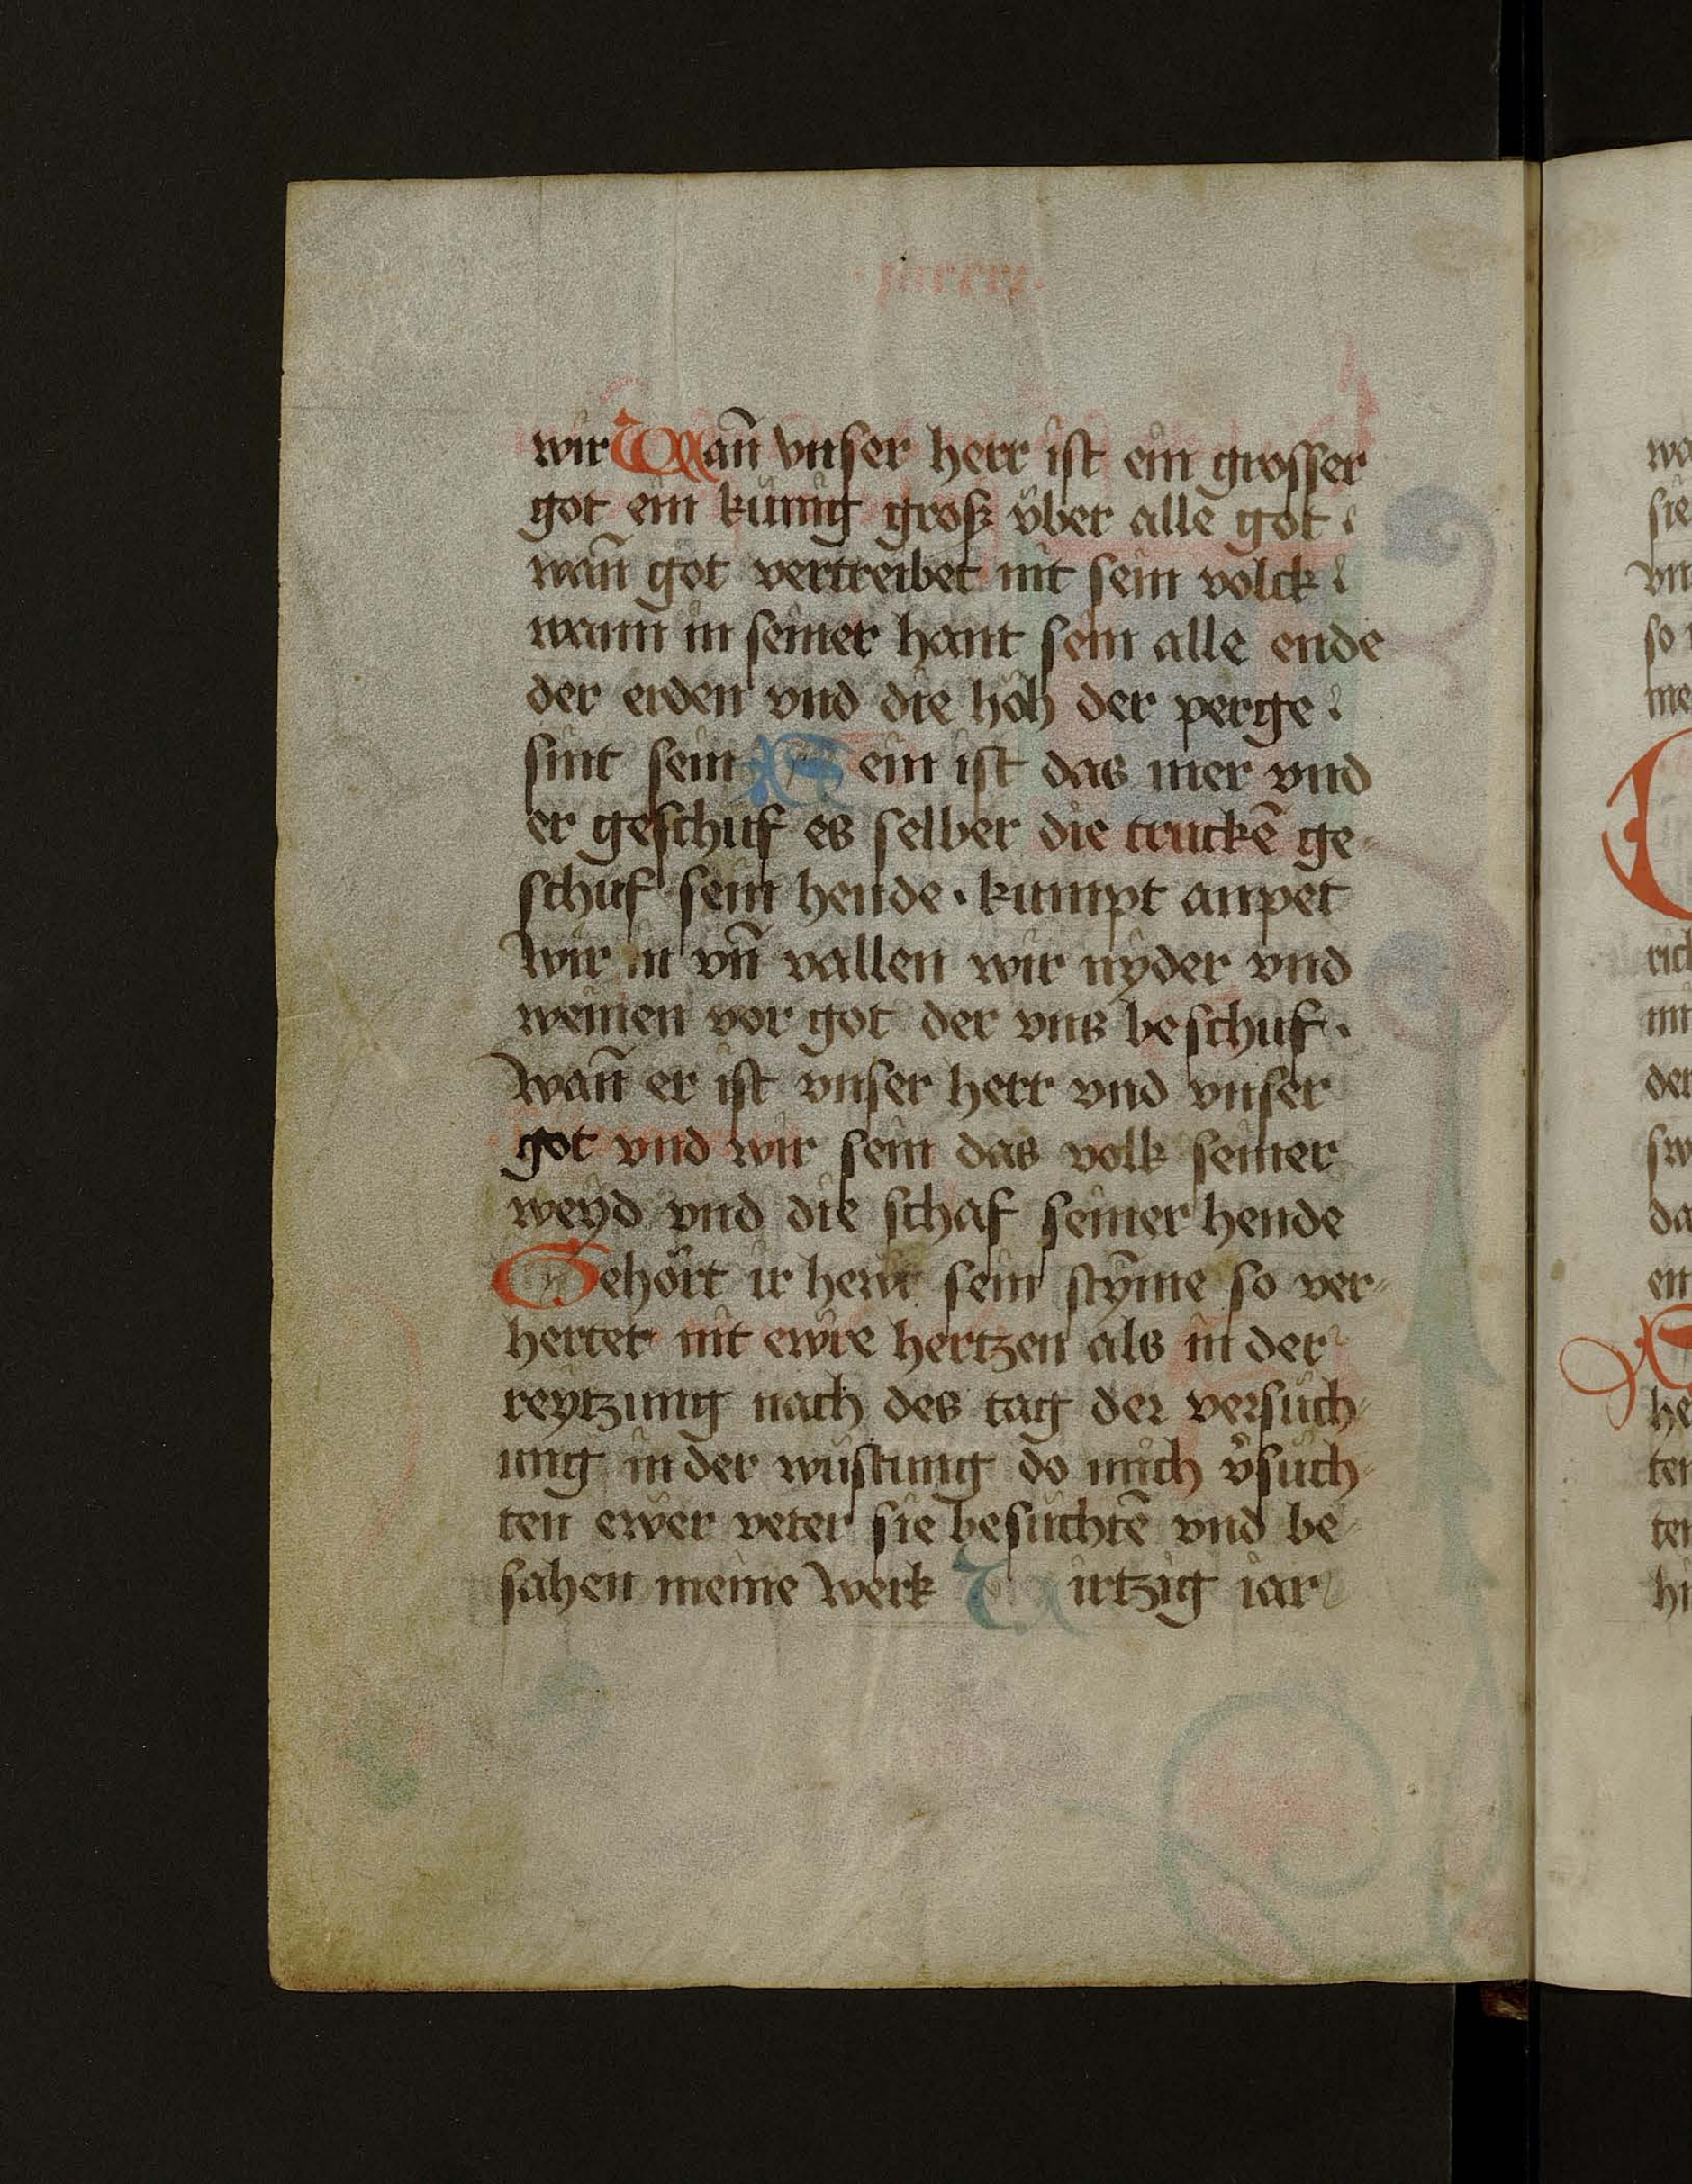 wir Wan̄ vnser herr ist ein grosser
got ein künig groß vͤber alle got
wan̄ got vertreibet nit sein volck
wann in seiner hant sein alle ende
der erden vnd die höh der perge
sint sein Sein ist das mer vnd
er geschuf es selber die truckē ge
schuf sein hende · kumpt anpet
wir in vn̄ vallen wir nyder vnd
weinen vor got der vns beschuf ·
Wan̄ er ist vnser herr vnd vnser
got vnd wir sein das volk seiner
weyd vnd die schaf seiner hende
Gehört ir hewt sein stȳme so ver
hertet nit ewre hertzen als in der
reytzung nach des tag der versuch
ung in der wüstung do mich v̾such
ten ewer veter sie besuchtē vnd be
sahen meine werk Virtzig iar